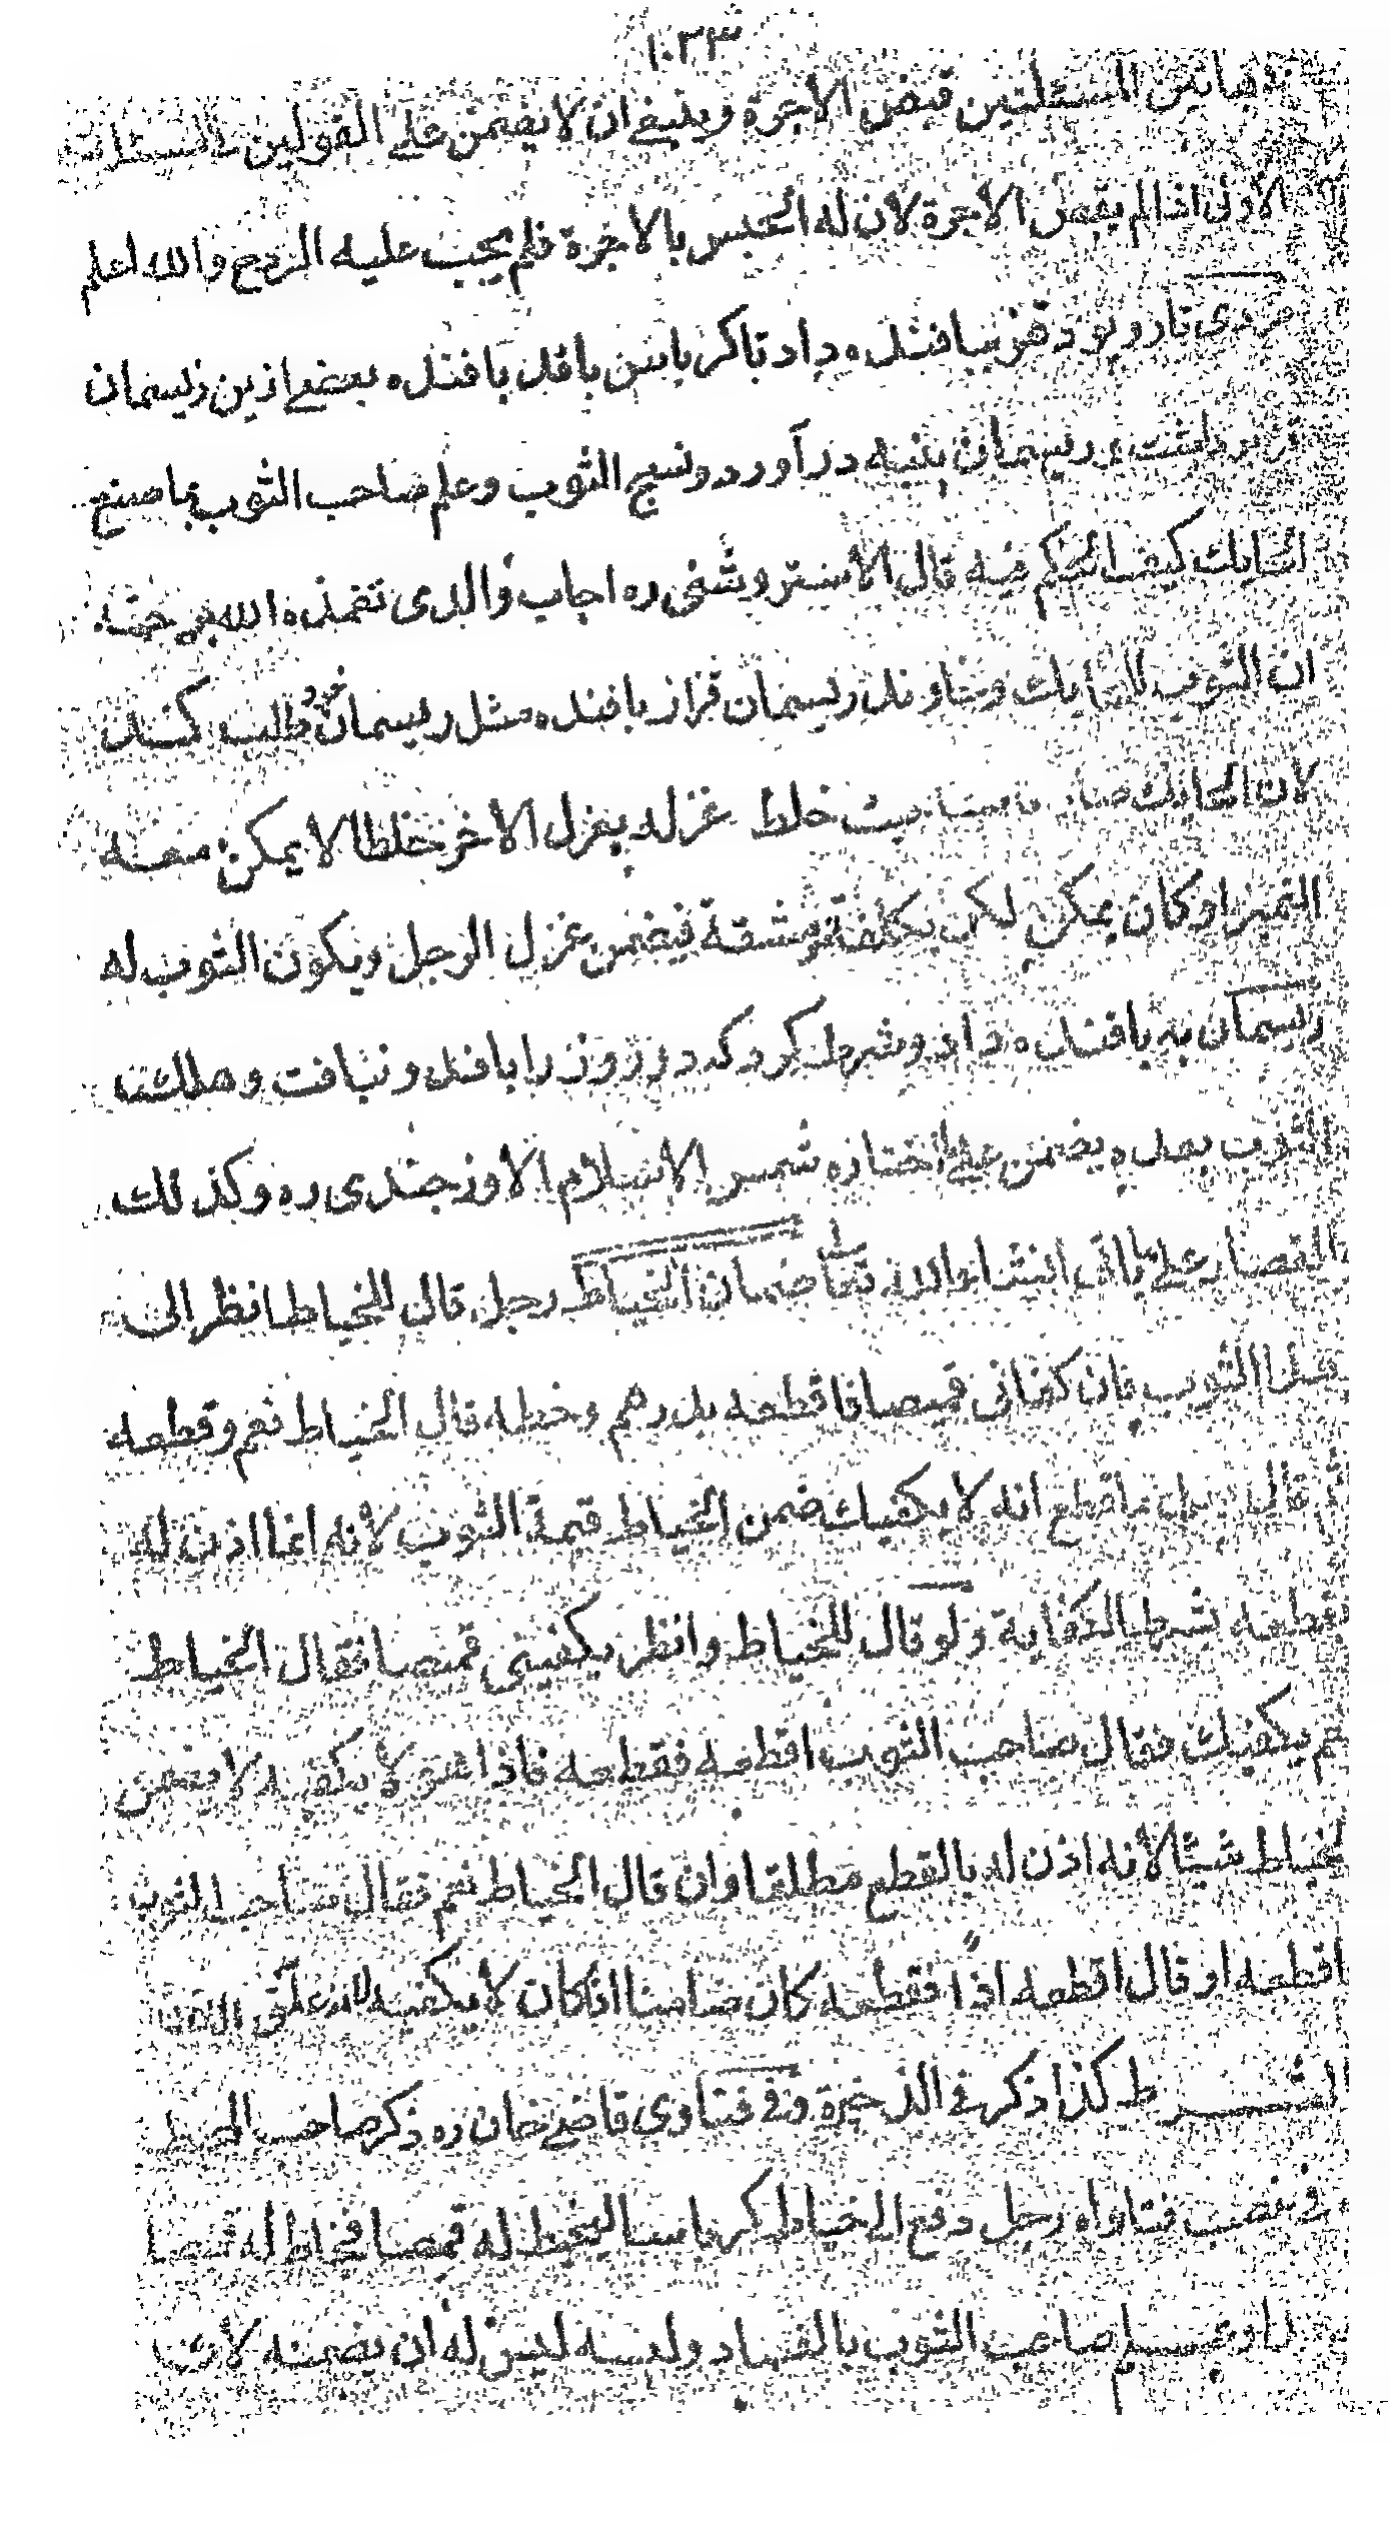 ١٠٣٣
المسئلتين قبض الاجرة وينبغي ان لا يضمن على القولين في المسئلة
الاولى اذا لم يقبض الاجرة لان له الحبس بالاجرة فلم يجب عليه الردح والله اعلم
مردی تار و پود قز ببافنده داد تا کرباسن بافد بافنده بعضی ازین ریسمان
بر داشت و ریسمان پنبه در آورد ونسج الثوب وعلم صاحب الثوب بما صنع
الحايك كيف الحكم فيه قال الاستروشنى ره اجاب والدى تغمده الله برحمته
ان الثوب للحايك وخداوند ریسمان قز از بافنده مثل ریسمان خود طلب کند
لان الحايك حيث خلط غزله بغزل الاخر خلطا لا يمكن معه
التميز او كان يمكن لكن بكلفة ومشقة فيضمن غزل الرجل ويكون الثوب له
ریسمان به بافنده داد و شرط کرد که در روز را بافد و نبافت وهلكت
الثوب بعده يضمن على اختاره شمس الاسلام الاوزجندى ره وكذلك
القصار على ما انشا الله تعا ضمان الخياط رجل قال للخياط انظر الى
هذا الثوب فان كفانى قميصا فاقطعه بدرهم وخطه قال الخياط نعم وقطعه
قال بعد ما قطع انه لا يكفيك ضمن الخياط قيمة الثوب لانه انما اذن له
بقطعه بشرط الكفاية ولو قال للخياط وانظر يكفينى قميصا فقال الخياط
نعم يكفيك فقال صاحب الثوب اقطعه فقطعه فاذا هو لا يكفيه لا يضمن
الخياط شيئا لانه اذن له بالقطع مطلقا وان قال الخياط نعم فقال صاحب الثوب
اقطعه او قال اقطعه اذا فقطعه كان ضامنا اذا كان لا يكفيه لانه علق
الشرط كذا ذكر في الذخيرة وفى فتاوى قاضي خان ره ذكر صاحب المحيط
فتاواه رجل دفع الى خياط كرباسا ليخيط له قميصا فخاط له قميصا
وعلم صاحب الثوب بالفساد ولبسه ليس له ان يضمنه لان